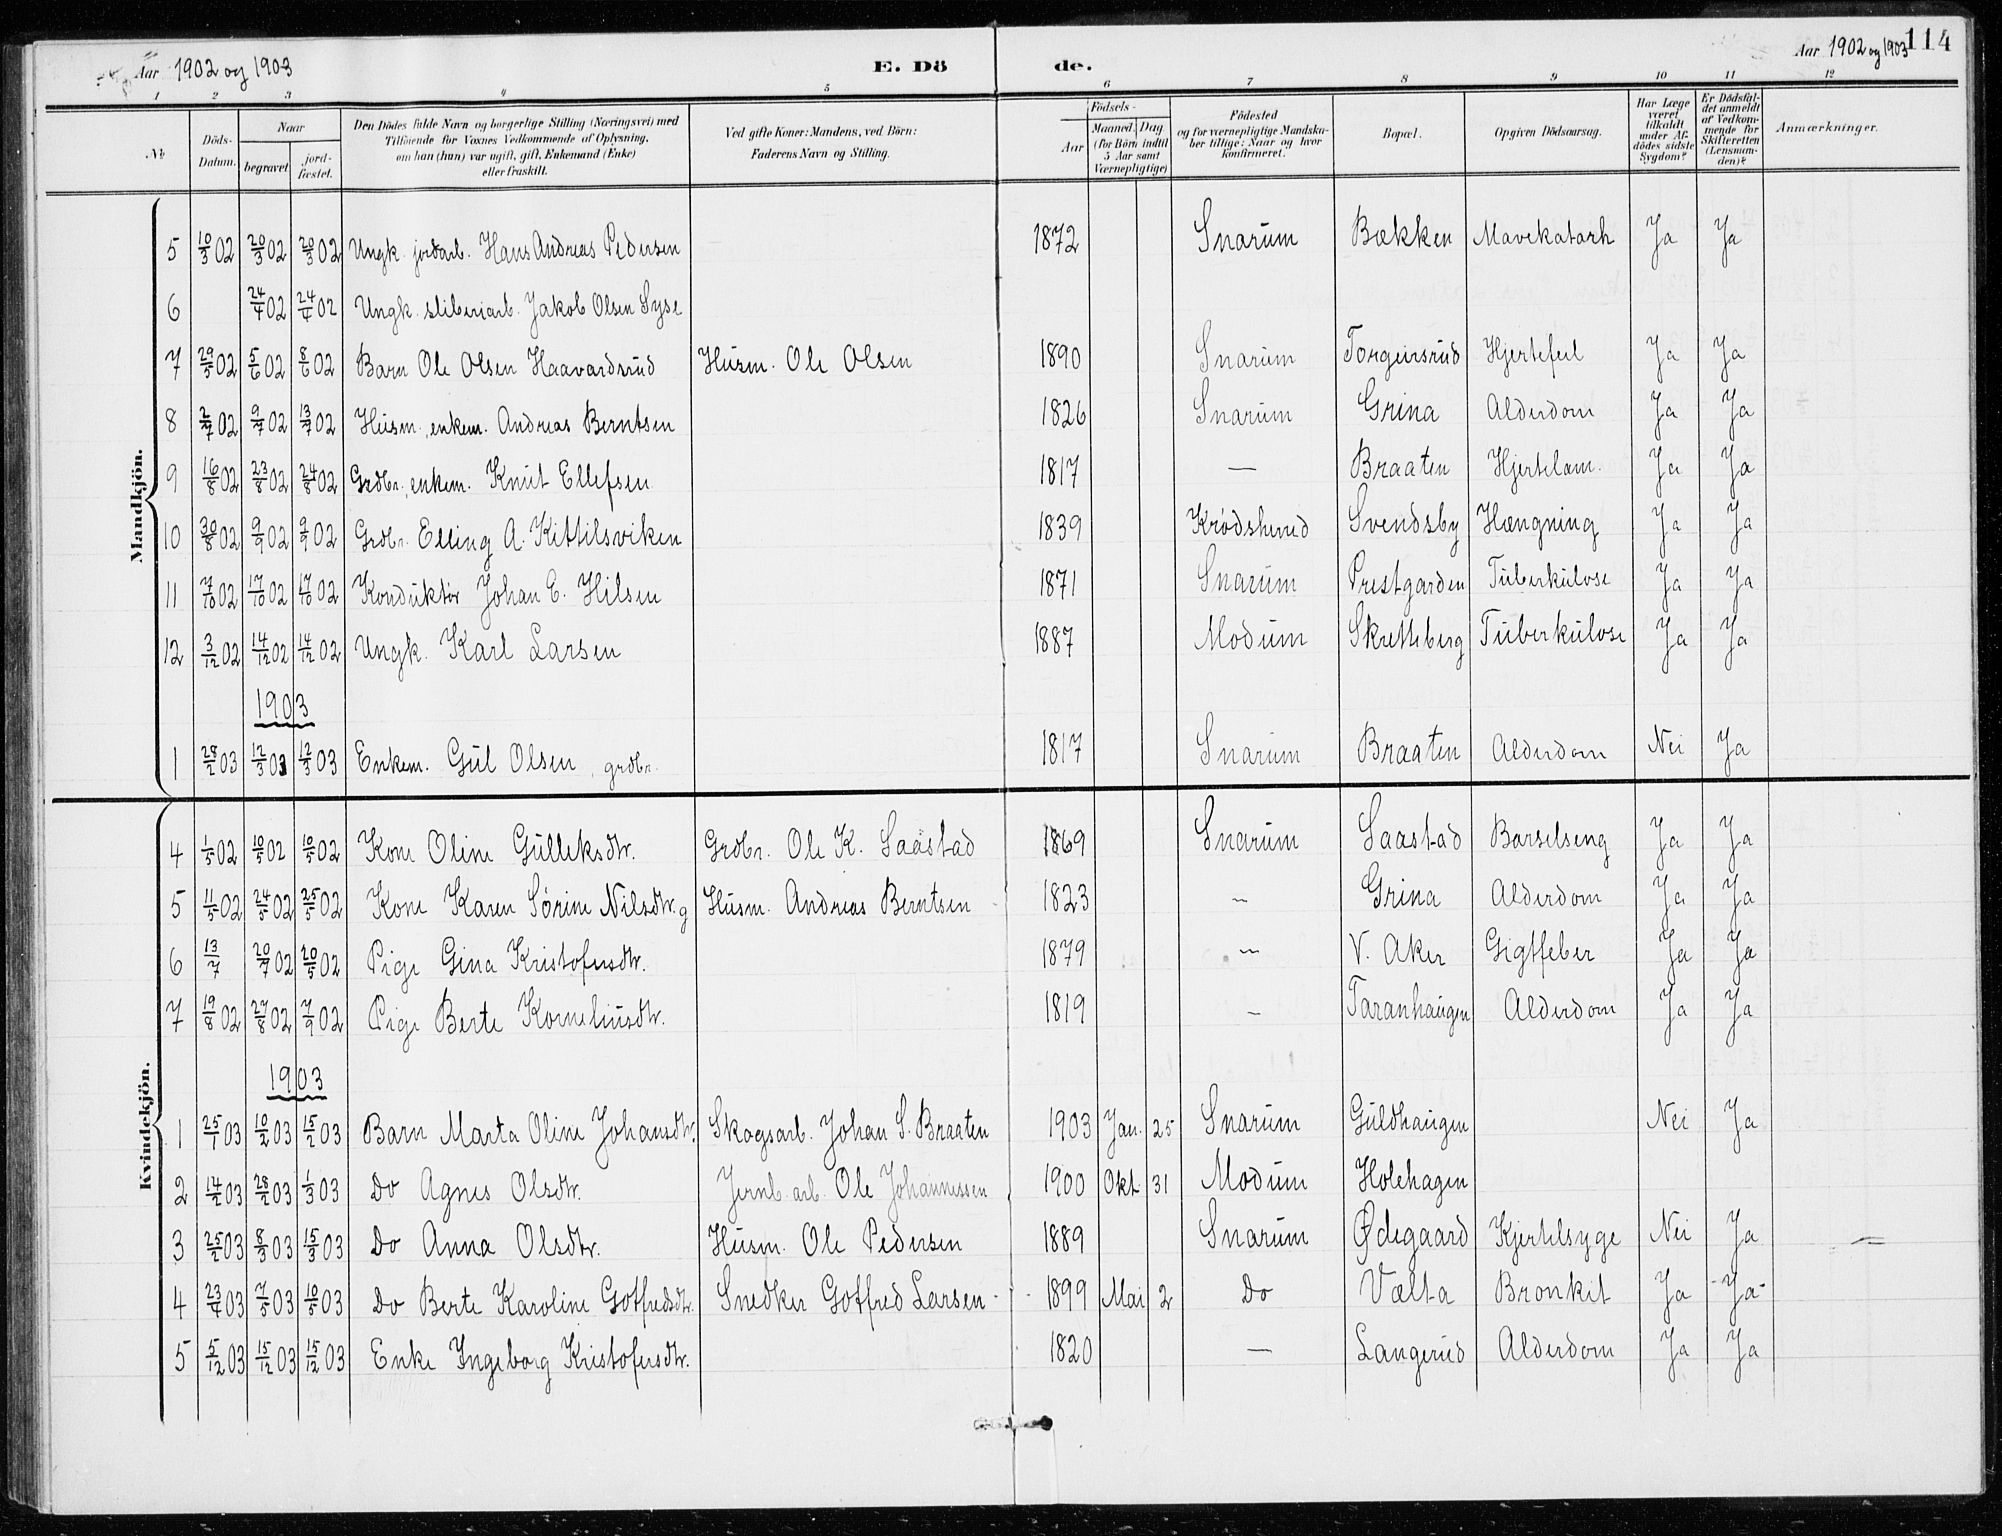 Aar 1902 og 1903 E. Dö de. Aar 1902 og 1903 114
1 2 3 4 5 6 7 8 9 10 11 12
No Döds-Datum. Naar begravet jordfæstet. Den Dödes fulde Navn og borgerlige Stilling (Næringsvei) med Tilföiende for Voxnes Vedkommende af Oplysning, om han (hun) var ugift, gift, Enkemand (Enke) eller fraskilt. Ved gifte Koner: Mandens, ved Börn: Faderens Navn og Stilling. Födsels- Aar Maaned. Dag (for Börn indtil 5 Aar samt Værnepligtige) Födested og for værnepligtige Mandskaber tillige: Naar og hvor konfirmeret. Bopæl. Opgiven Dödsaarsag. Har Læge været tilkaldt under Afdödes sidste Sygdom? Er Dödsfaldet anmeldt af Vedkommende for Skifteretten (Lensmanden)? Anmærkninger.
Mandkjön.
5 10/3 02 20/3 02 20/3 02 Ungk. jordarb. Hans Andreas Pedersen 1872 Snarum Bækken Mavekatarh Ja Ja
6 24/4 02 24/4 02 Ungk. sliberiarb. Jakob Olsen Syse
7 29/5 02 5/6 02 8/6 02 Barn Ole Olsen Haavardsrud Husm. Ole Olsen 1890 Snarum Torgeirsrud Hjertefeil Ja Ja
8 2/7 02 9/7 02 13/7 02 Husm., enkem. Andreas Berntsen 1826 Snarum Grina Alderdom Ja Ja
9 16/8 02 23/8 02 24/8 02 Grdbr., enkem. Knut Ellefsen 1817 — Braaten Hjertelam. Ja Ja
10 30/8 02 9/9 02 9/9 02 Grdbr. Elling A. Kittilsviken 1839 Krødsherred Svendsby Hængning Ja Ja
11 7/10 02 17/10 02 17/10 02 Konduktør Johan E. Hilsen 1871 Snarum Prestgarden Tuberkulose Ja Ja
12 3/12 02 14/12 02 14/12 02 Ungk. Karl Larsen 1887 Modum Skretteberg Tuberkulose Ja Ja
1903
1 28/2 03 12/3 03 12/3 03 Enkem. Gul Olsen, grdbr. 1817 Snarum Braaten Alderdom Nei Ja
Kvindekjön.
4 1/5 02 10/5 02 10/5 02 Kone Oline Gulleksdtr. Grdbr. Ole K. Saastad 1869 Snarum Saastad Barselseng Ja Ja
5 11/5 02 24/5 02 25/5 02 Kone Karen Sørine Nilsdtr. g Husm. Andreas Berntsen 1823 — Grina Alderdom Ja Ja
6 13/7 20/7 02 20/5 02 Pige Gina Kristofersdtr. 1879 — V. Aker Gigtfeber Ja Ja
7 19/8 02 27/8 02 7/9 02 Pige Berte Korneliusdtr. 1819 — Taranhaugen Alderdom Ja Ja
1903
1 25/1 03 10/2 03 15/2 03 Barn Marta Oline Johansdtr. Skogsarb. Johan S. Braaten 1903 Jan. 25 Snarum Guldhaugen Nei Ja
2 14/2 03 28/2 03 1/3 03 Do Agnes Olsdtr. Jernb.arb. Ole Johannessen 1900 Okt 31 Modum Holehagen
3 25/2 03 8/3 03 15/3 03 Do Anna Olsdtr. Husm. Ole Pedersen 1889 Snarum Ødegaard Kjertelsyge Nei Ja
4 23/4 03 7/5 03 10/5 03 Do Berte Karoline Gotfredsdtr. Snedker Gotfred Larsen 1899 Mai 2 Do Vælta Bronkit Ja Ja
5 5/12 03 15/12 03 15/12 03 Enke Ingeborg Kristofersdtr. 1820 — Langerud Alderdom Ja Ja